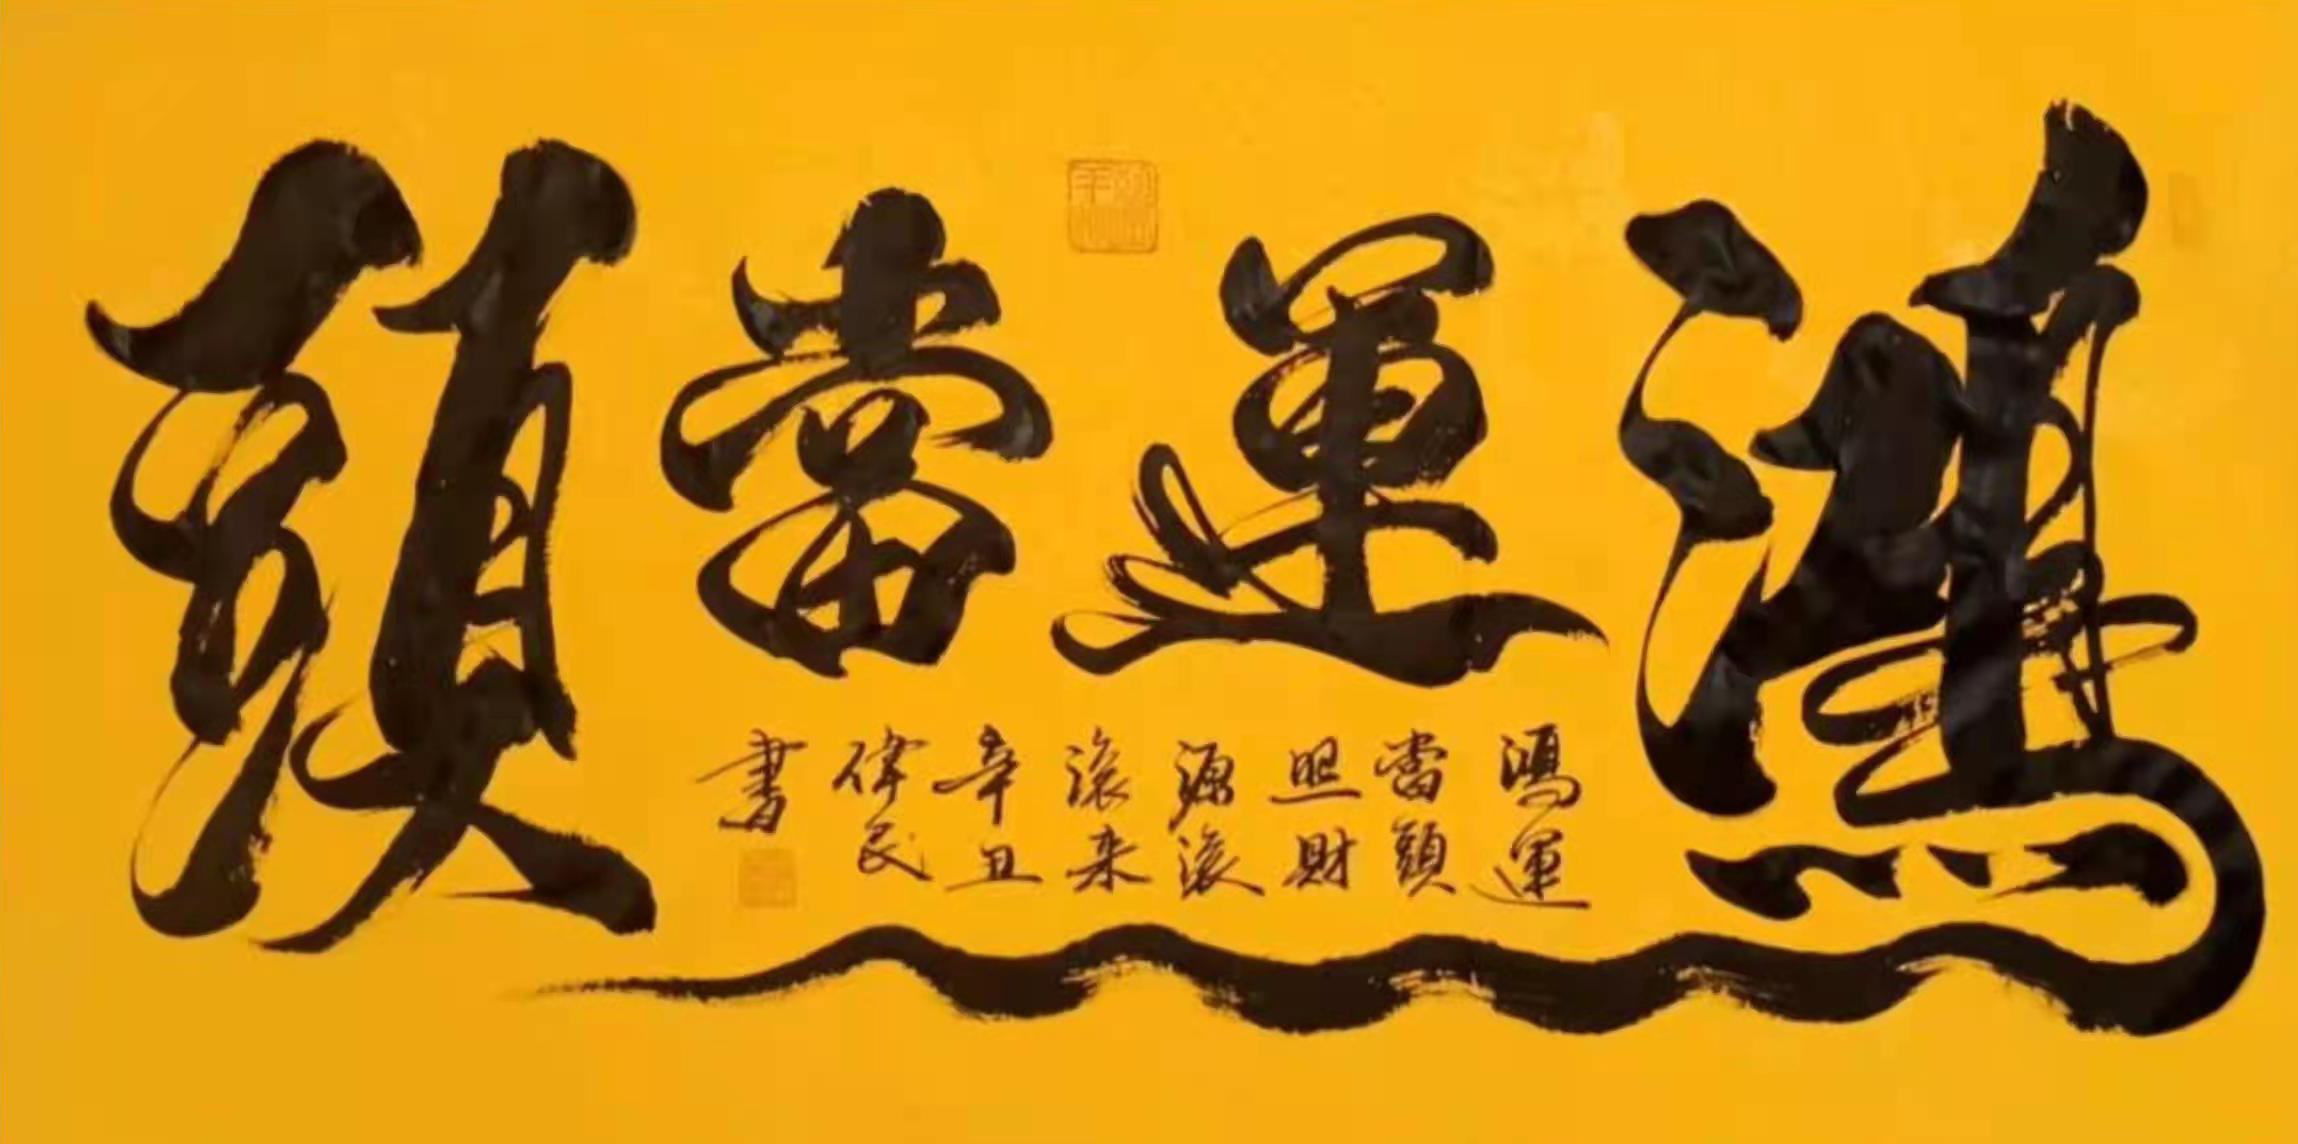 鴻運當頭
鴻運
當頭
照財
源滾
滾來
辛丑
偉民
書